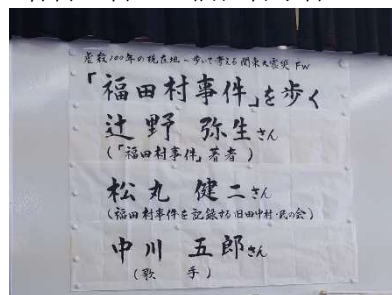 虐殺100年の現在地－歩いて考える関東大震災FW
「福田村事件」を歩く
辻野 弥生さん
(「福田村事件」著者)
松丸 健二さん
(福田村事件を記録する旧田中村・民の会)
中川 五郎さん
(歌手)